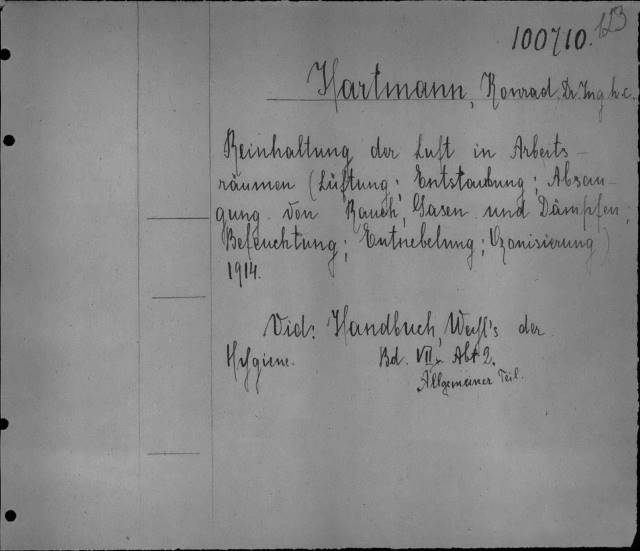 123
100710.
Hartmann, Konrad, Dr. Ing. h. c.
Reinhaltung der Luft in Arbeits-
räumen (Lüftung; Entstaubung; Absau-
gung von Rauch, Gasen und Dämpfen;
Befeuchtung; Entnebelung; Ozonisierung)
1914.
Vid: Handbuch, Weyl's der
Hygiene. Bd. VII. Abt 2.
Allgemeiner Teil.